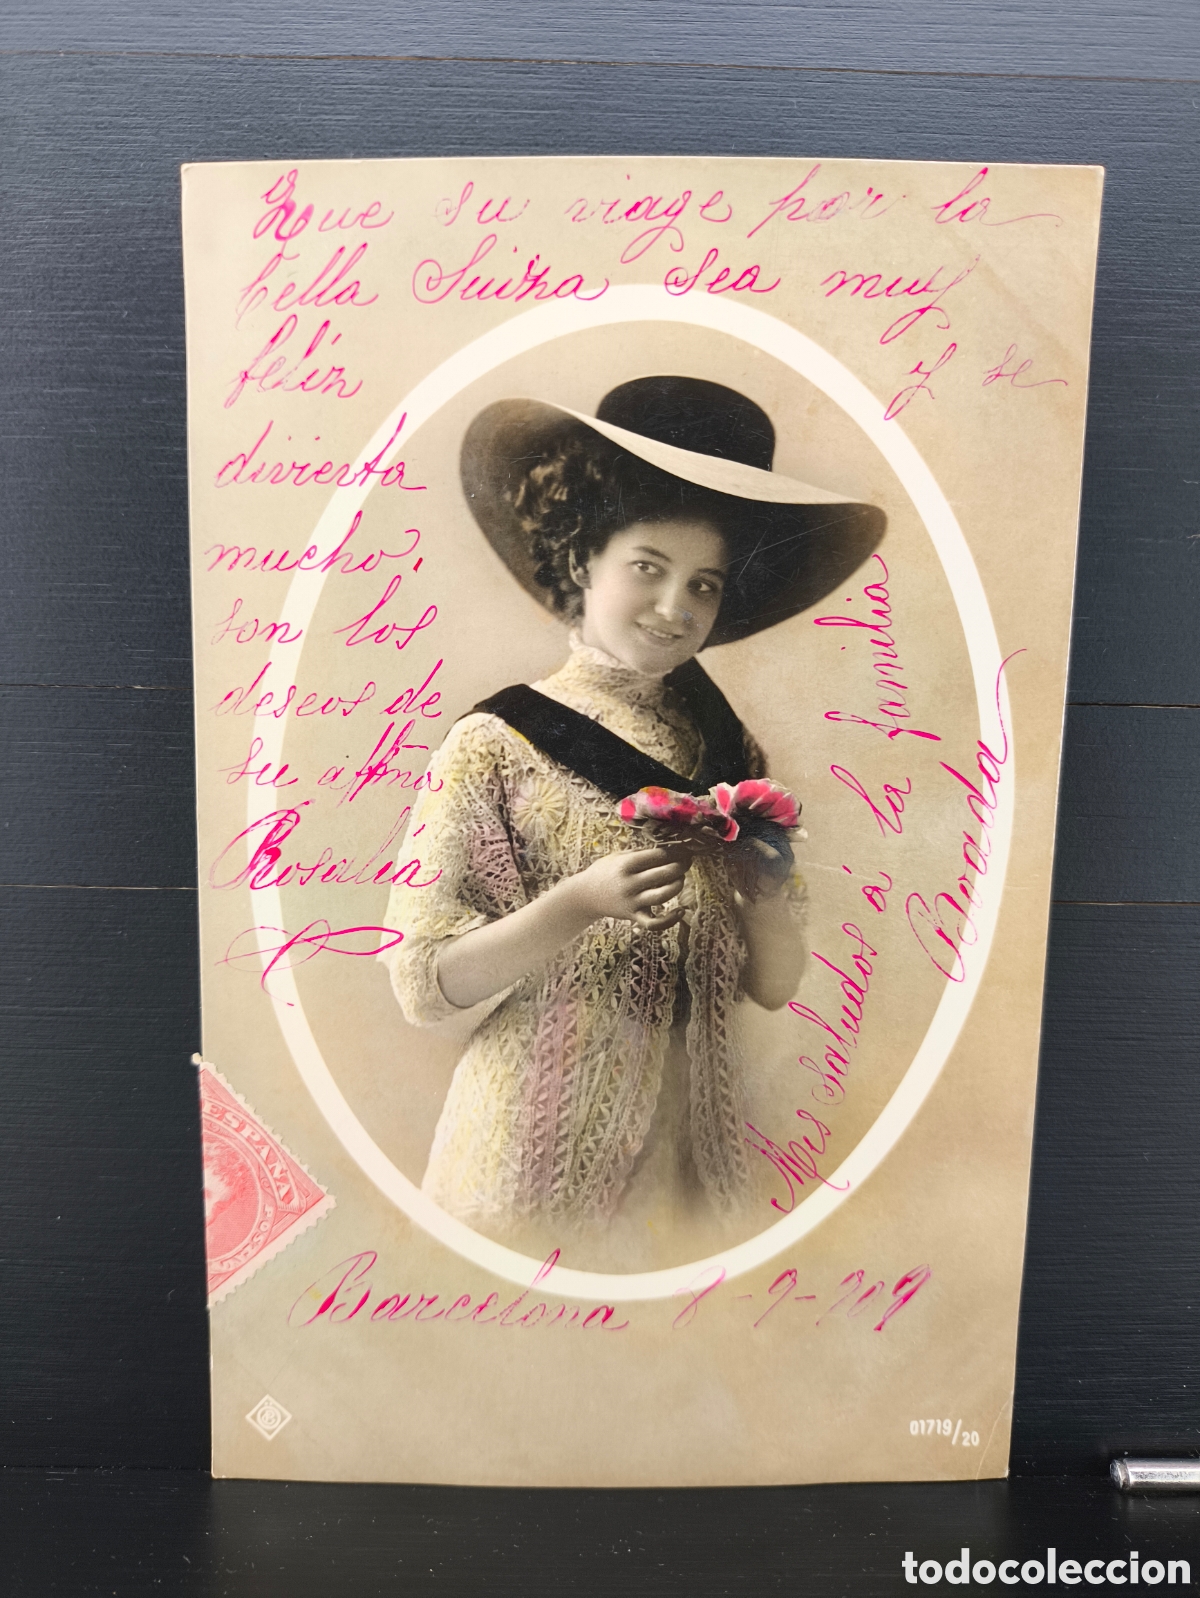 Que su viage por la
bella Suiza sea muy
feliz y se
divierta
mucho,
son los
deseos de
su affma
Rosalía
Mis saludos á la familia
Borada
ESPAÑA
Barcelona 8-9-909
01719/20
todocoleccion